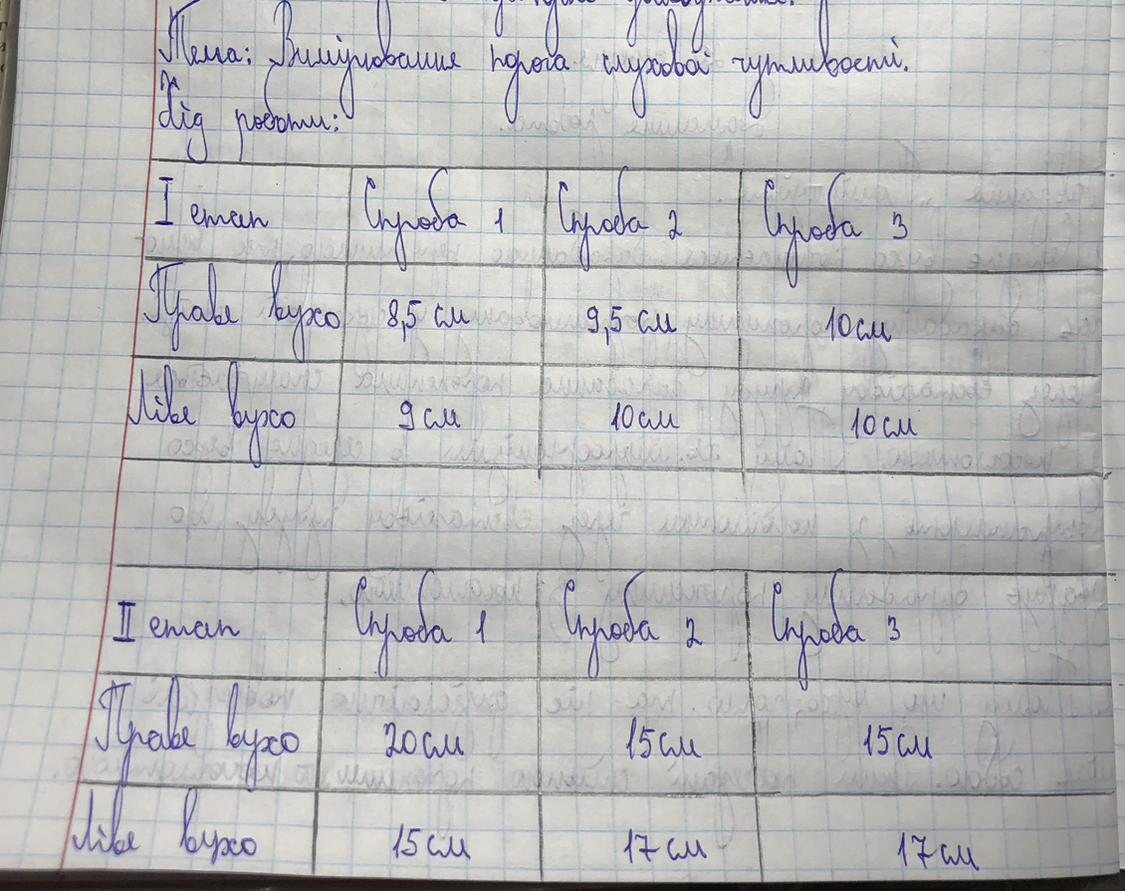 Тема: Вимірювання порога слухової чутливості.
Хід роботи:
I етап Спроба 1 Спроба 2 Спроба 3
Праве вухо 8,5 см 9,5 см 10 см
Ліве вухо 9 см 10 см 10 см
II етап Спроба 1 Спроба 2 Спроба 3
Праве вухо 20 см 15 см 15 см
Ліве вухо 15 см 17 см 17 см